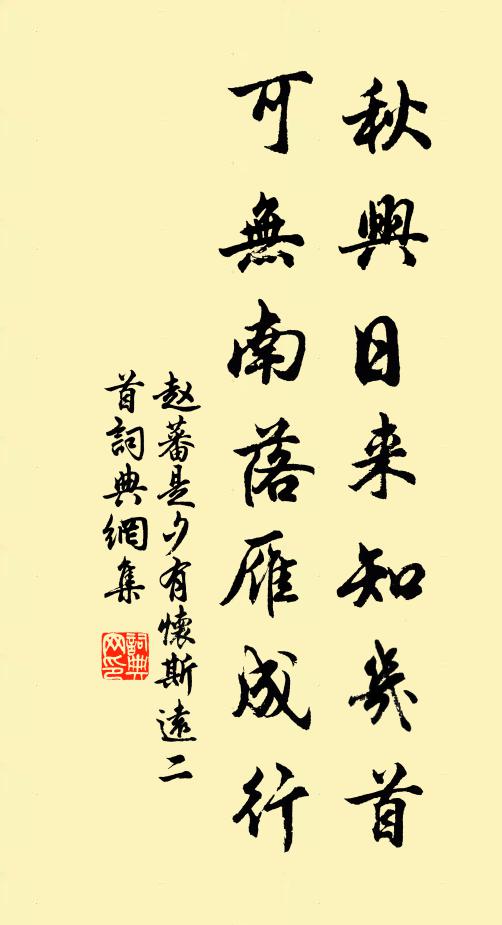 秋興日来知幾首
可無南落雁成行
赵蕃是夕有懷斯遠二
首詞典網集
詞典网印